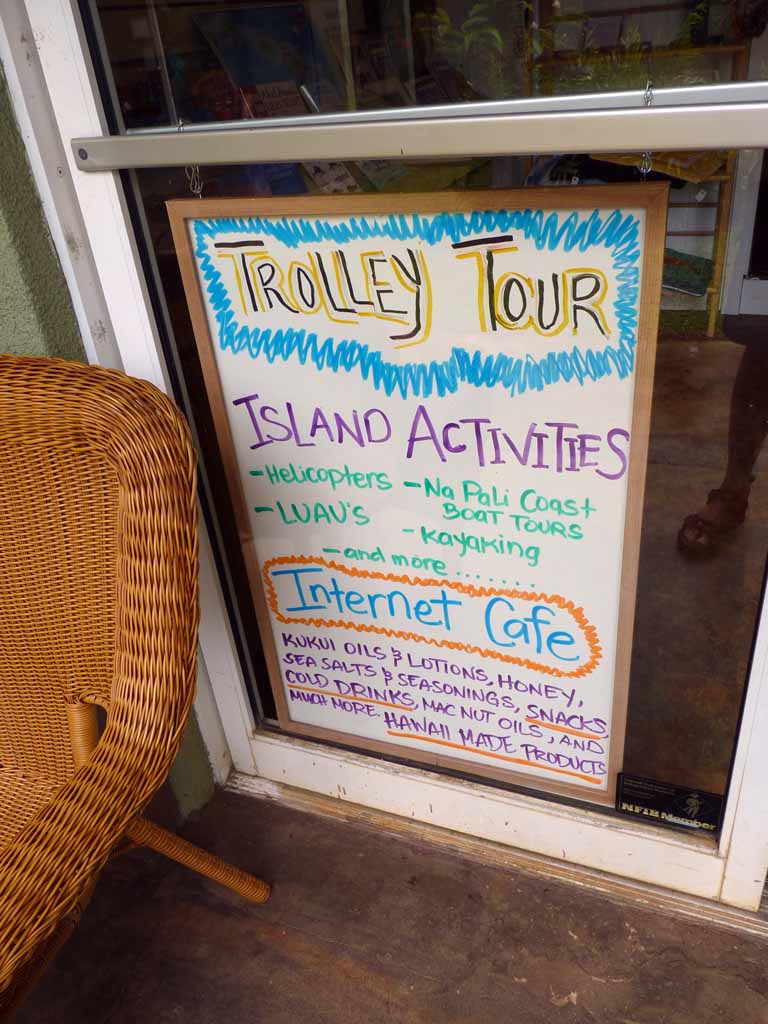 TROLLEY TOUR
ISLAND ACTIVITIES
-Helicopters -Na Pali Coast
BOAT TOURS
-LUAU'S -Kayaking
-and more........
Internet Cafe
KUKUI OILS & LOTIONS, HONEY,
SEA SALTS & SEASONINGS, SNACKS,
COLD DRINKS, MAC NUT OILS, AND
MUCH MORE. HAWAII MADE PRODUCTS
NFIB Member